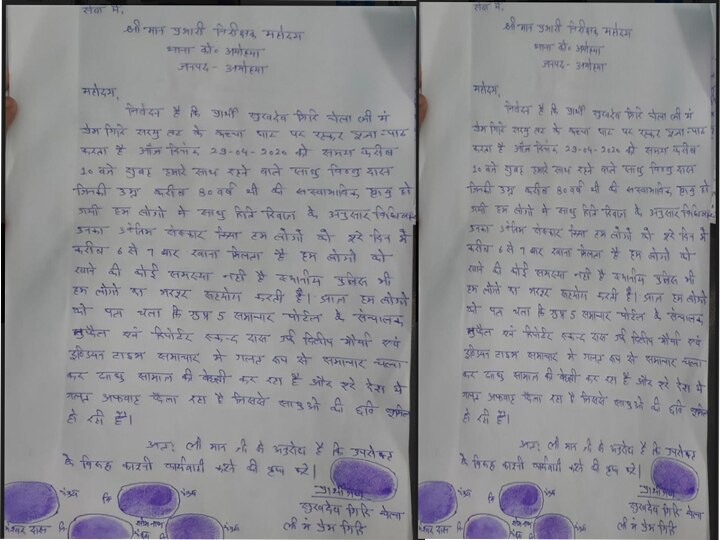 सेवा में,
श्री मान प्रभारी निरीक्षक महोदय
थाना को० अयोध्या
जनपद- अयोध्या
महोदय,
निवेदन है कि प्रार्थी सुखदेव गिरि चेला श्री मं
प्रेम गिरि सरयू तट के कच्चा घाट पर रहकर पूजा-पाठ
करता है आज दिनांक 29-04-2020 को समय करीब
10 बजे सुबह हमारे साथ रहने वाले साधु विष्णु दास
जिनकी उम्र करीब 80 वर्ष थी की मृत्यु हो
गयी हम लोगों ने साधु रीति रिवाज के अनुसार
उनका अंतिम संस्कार किया हम लोगों को पूरे दिन में
करीब 6 से 7 बार खाना मिलता है हम लोगों को
खाने की कोई समस्या नहीं है स्थानीय पुलिस भी
हम लोगों का भरपूर सहयोग करती है। आज हम लोगों
को पता चला के समाचार पोर्टल के संचालक
एवं रिपोर्टर दास उर्फ मौर्या एवं
इण्डियन टाइम समाचार में गलत रूप से समाचार चला
कर साधु समाज की कर रहा है और पूरे देश में
गलत अफवाह फैला रहा है जिससे साधुओं की छवि
हो रही है।
अतः श्री मान जी से अनुरोध है कि उपरोक्त
के विरुद्ध कानूनी कार्यवाही करने की कृपा करें।
प्रार्थीगण
सुखदेव गिरि चेला
श्री मं प्रेम गिरि
सेवा में,
श्री मान प्रभारी निरीक्षक महोदय
थाना को० अयोध्या
जनपद- अयोध्या
महोदय,
निवेदन है कि प्रार्थी सुखदेव गिरि चेला श्री मं
प्रेम गिरि सरयू तट के कच्चा घाट पर रहकर पूजा-पाठ
करता है आज दिनांक 29-04-2020 को समय करीब
10 बजे सुबह हमारे साथ रहने वाले साधु विष्णु दास
जिनकी उम्र करीब 80 वर्ष थी की मृत्यु हो
गयी हम लोगों ने साधु रीति रिवाज के अनुसार
उनका अंतिम संस्कार किया हम लोगों को पूरे दिन में
करीब 6 से 7 बार खाना मिलता है हम लोगों को
खाने की कोई समस्या नहीं है स्थानीय पुलिस भी
हम लोगों का भरपूर सहयोग करती है। आज हम लोगों
को पता चला के समाचार पोर्टल के संचालक
एवं रिपोर्टर दास उर्फ मौर्या एवं
इण्डियन टाइम समाचार में गलत रूप से समाचार चला
कर साधु समाज की कर रहा है और पूरे देश में
गलत अफवाह फैला रहा है जिससे साधुओं की छवि
हो रही है।
अतः श्री मान जी से अनुरोध है कि उपरोक्त
के विरुद्ध कानूनी कार्यवाही करने की कृपा करें।
प्रार्थीगण
सुखदेव गिरि चेला
श्री मं प्रेम गिरि